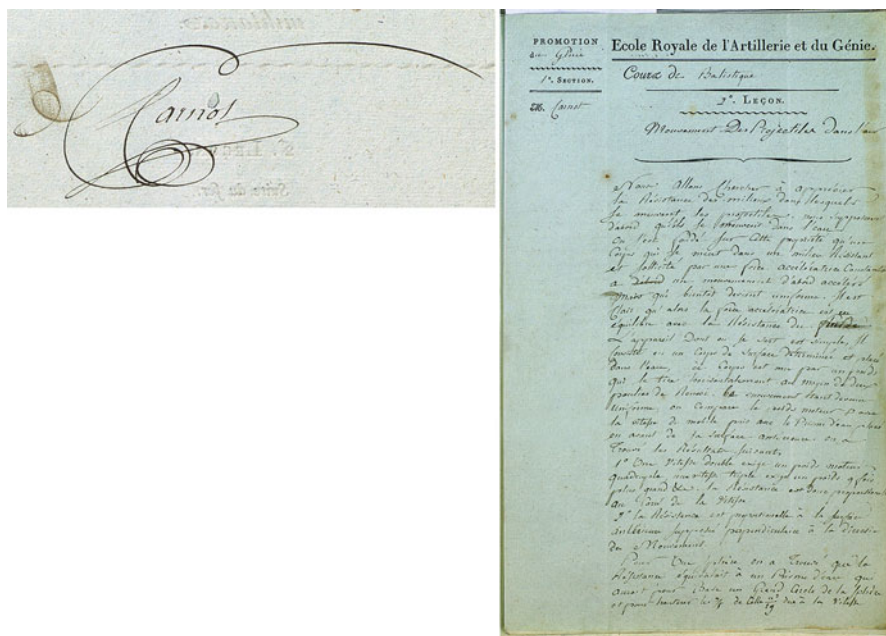 Carnot
PROMOTION
du Génie
1re. SECTION.
M. Carnot
Ecole Royale de l'Artillerie et du Génie.
Cours de Balistique
2e. LEÇON.
Mouvement Des Projectiles dans l'air
Nous Allons Chercher à apprécier
la Résistance des milieux dans lesquels
se meuvent les projectiles. nous supposerons
d'abord qu'ils se meuvent dans l'eau
on l'est fondé sur Cette propriété qu'un
Corps qui se meut dans un milieu Résistant
et sollicité par une force accélératrice Constante
a d'abord un mouvement d'abord accéléré
mais qui bientôt devient uniforme. Il est
Clair qu'alors la force accélératrice est en
équilibre avec la Résistance du fluide
L'appareil Dont on se sert est simple. Il
consiste en un Corps de surface déterminée et placé
dans l'eau, ce Corps est mu par un poids
qui le tire horizontalement au moyen de deux
poulies de Renvoi. Le mouvement étant devenu
uniforme, on Compare le poids moteur
la vitesse du mobile
en avant de sa surface antérieure on a
Trouvé les Résultats suivants.
1o Une vitesse double exige un poids moteur
quadruple une vitesse triple exige un poids 9 fois
plus grand &a. la Résistance est donc proportionnelle
au Carré de la vitesse
2o la Résistance est proportionnelle à la surface
antérieure supposée perpendiculaire à la direction
du Mouvement.
Pour Une sphère on a Trouvé que la
Résistance équivalait à un Prisme d'eau qui
aurait pour Base un Grand Cercle de la sphère
et pour hauteur les de Celle due à la vitesse